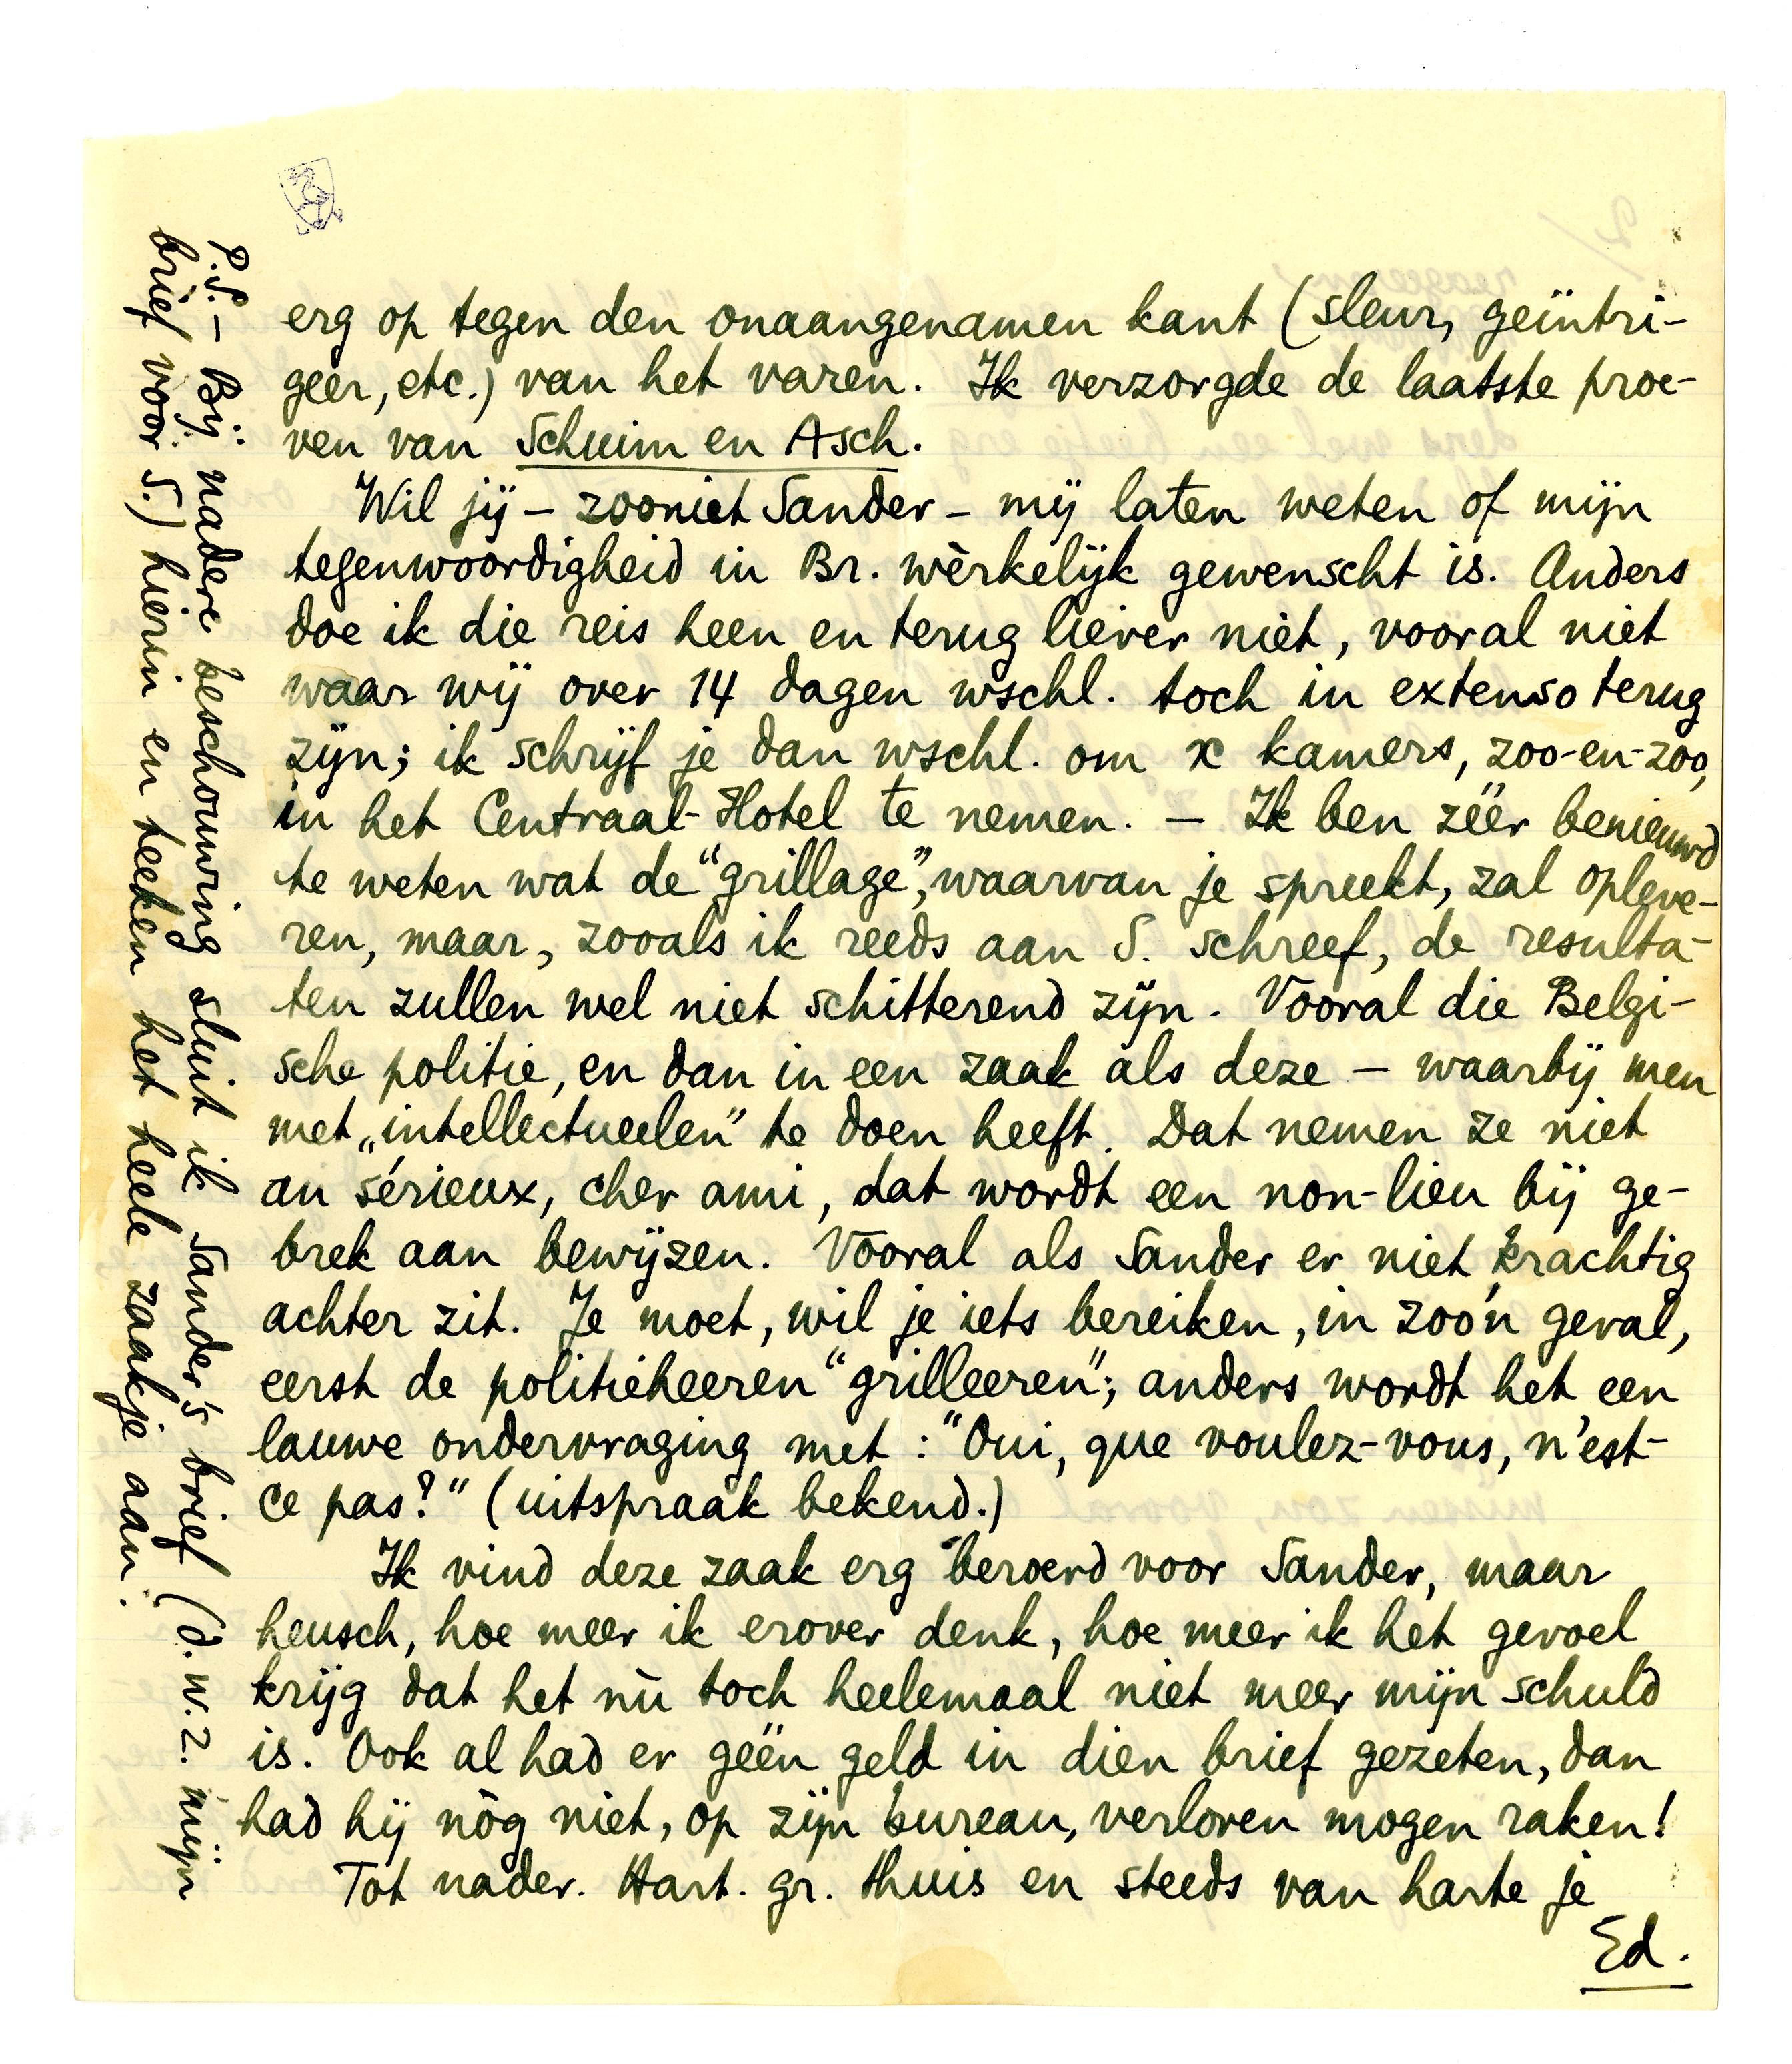 erg op tegen den onaangenamen kant (sleur, geïntri-
geer, etc.) van het varen. Ik verzorgde de laatste proe-
ven van Schuim en Asch.
Wil jij – zooniet Sander – mij laten weten of mijn
tegenwoordigheid in Br. wèrkelijk gewenscht is. Anders
doe ik die reis heen en terug liever niet, vooral niet
waar wij over 14 dagen wschl. toch in extenso terug
zijn; ik schrijf je dan wschl. om x kamers, zoo-en-zoo,
in het Centraal-Hotel te nemen. – Ik ben zéér benieuwd
te weten wat de "grillage", waarvan je spreekt, zal opleve-
ren, maar, zooals ik reeds aan S. schreef, de resulta-
ten zullen wel niet schitterend zijn. Vooral die Belgi-
sche politie, en dan in een zaak als deze – waarbij men
met „intellectueelen" te doen heeft. Dat nemen ze niet
au sérieux, cher ami, dat wordt een non-lieu bij ge-
brek aan bewijzen. Vooral als Sander er niet krachtig
achter zit. Je moet, wil je iets bereiken, in zoo'n geval,
eerst de politieheeren "grilleeren"; anders wordt het een
lauwe ondervraging met: "Oui, que voulez-vous, n'est-
ce pas?" (uitspraak bekend.)
Ik vind deze zaak erg beroerd voor Sander, maar
heusch, hoe meer ik erover denk, hoe meer ik het gevoel
krijg dat het nù toch heelemaal niet meer mijn schuld
is. Ook al had er géén geld in dien brief gezeten, dan
had hij nòg niet, op zijn bureau, verloren mogen raken!
Tot nader. Hart. gr. thuis en steeds van harte je
Ed.
P.S. – Bij nadere beschouwing sluit ik Sander's brief (d.w.z. mijn
brief voor S.) hierin en teeken het heele zaakje aan.